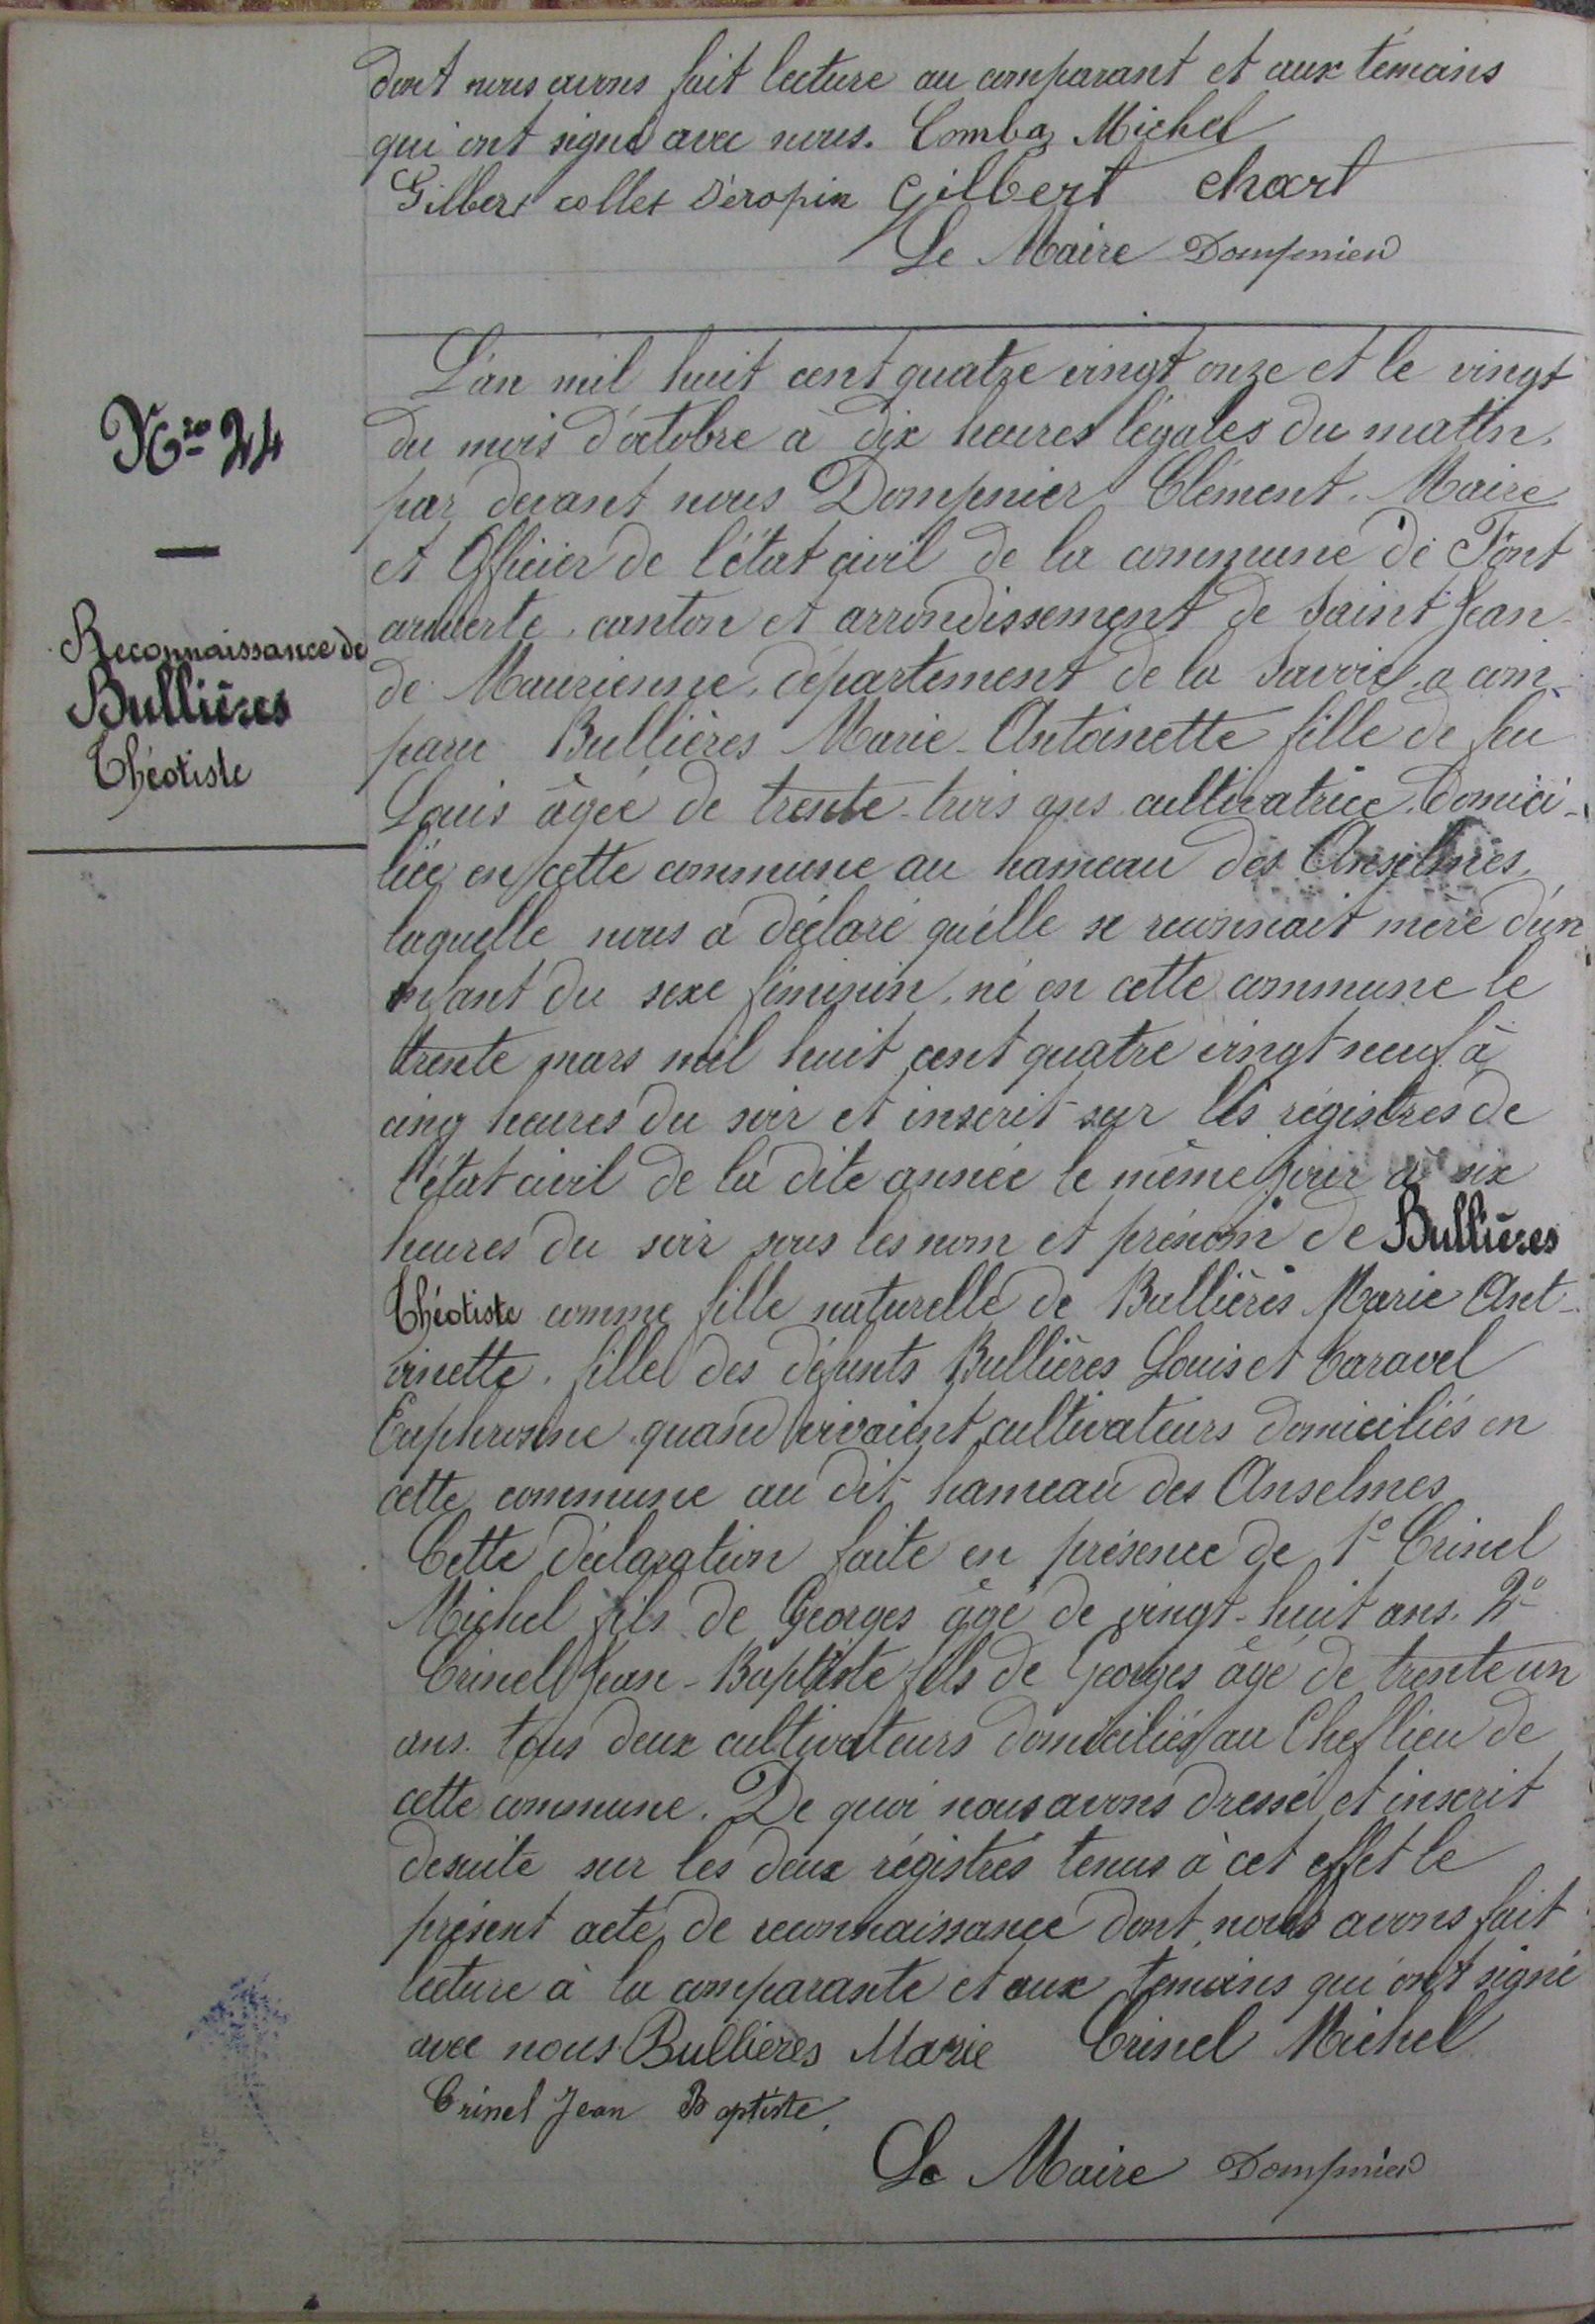 dont nous avons fait lecture au comparant et aux témoins
qui ont signé avec nous. Combaz Michel
Gilbert collet Séropin Gilbert chart
Le Maire Dompnier
L'an mil huit cent quatre vingt onze et le vingt
du mois d'octobre à dix heures légales du matin,
par devant nous Dompnier Clément, Maire
et Officier de l'état civil de la commune de Font
couverte, canton et arrondissement de Saint Jean
de Maurienne, département de la Savoie, a com
paru Bullières Marie-Antoinette fille de feu
Louis âgée de trente-trois ans cultivatrice, domici-
liée en cette commune au hameau des Anselmes,
laquelle nous a déclaré qu'elle se reconnait mère d'un
enfant du sexe féminin, né en cette commune le
trente mars mil huit cent quatre vingt neuf à
cinq heures du soir et inscrit sur les régistres de
l'état civil de la dite année le même jour à six
heures du soir sous les nom et prénom de Bullières
Théotiste comme fille naturelle de Bullières Marie Ant-
oinette, fille des défunts Bullières Louis et Caravel
Euphrosine quand vivaient cultivateurs domiciliés en
cette commune au dit hameau des Anselmes
Cette déclaration faite en présence de 1° Crinel
Michel fils de Georges âgé de vingt-huit ans. 2°
Crinel Jean-Baptiste fils de Georges âgé de trente un
ans. tous deux cultivateurs domiciliés au Chef lieu de
cette commune. De quoi nous avons dressé et inscrit
desuite sur les deux régistres tenus à cet effet le
présent acte de reconnaissance dont nous avons fait
lecture à la comparante et aux témoins qui ont signé
avec nous Bullières Marie Crinel Michel
Crinel Jean Baptiste.
Le Maire Dompnier
Nro 24
Reconnaissance de
Bullières
Théotiste